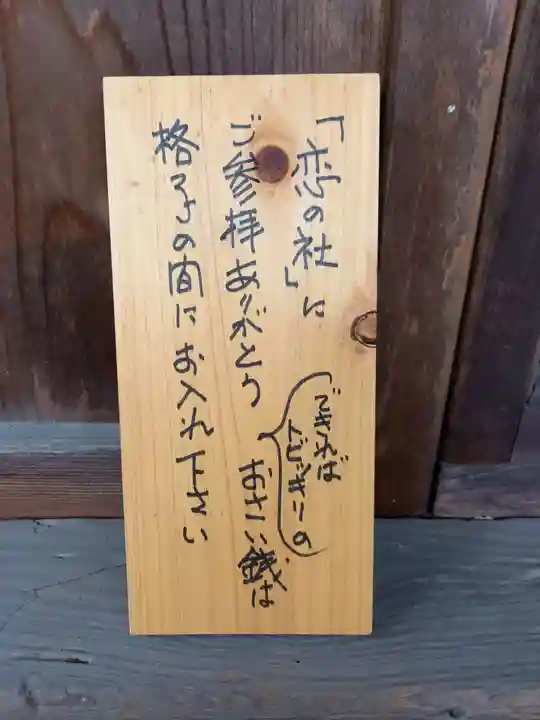 「恋の社」に
ご参拝ありがとう
（できれば
トビッキリの）
おさい銭は
格子の間にお入れ下さい